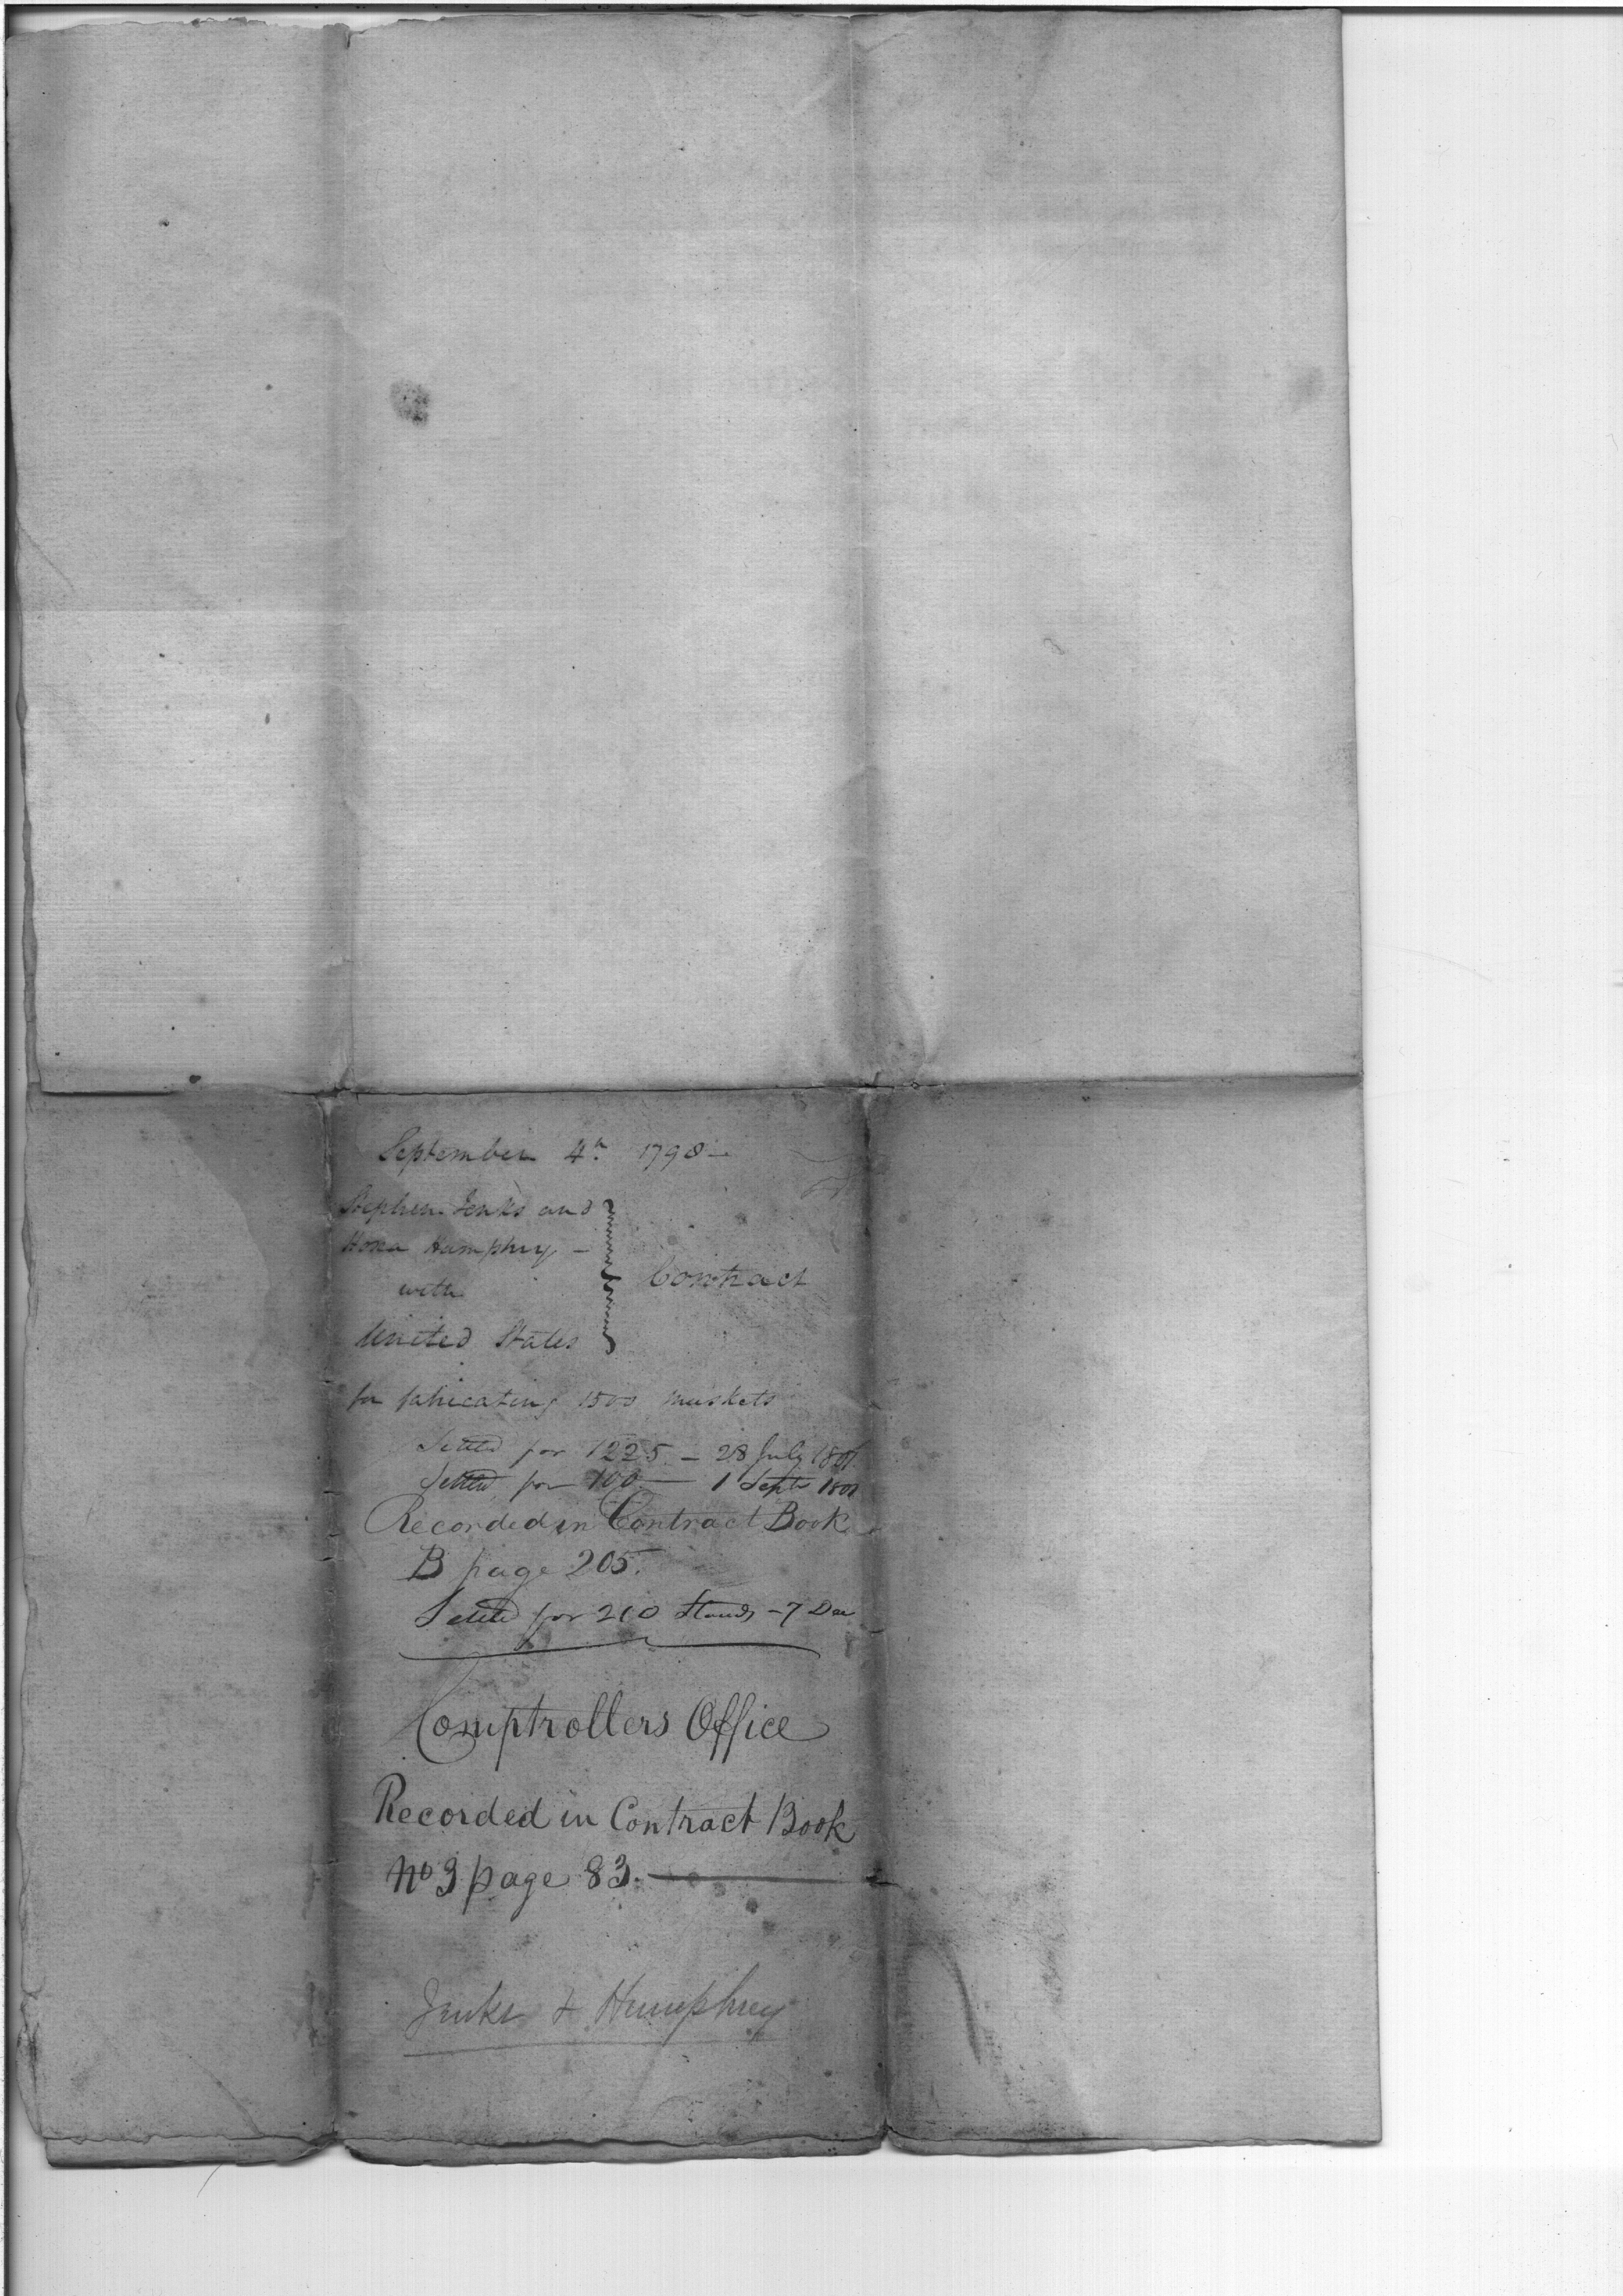 September 4th 1798 —
Stephen Jenks and
Hosea Humphrey —
with
United States
Contract
for fabricating 1500 muskets
Settled for 1225 — 28 July 1801
Settled for 100 — 1 Septr 1801
Recorded in Contract Book
B page 205.
Settled for 210 Stands — 7 Dec
Comptrollers Office
Recorded in Contract Book
No 3 page 83. —
Jenks & Humphrey